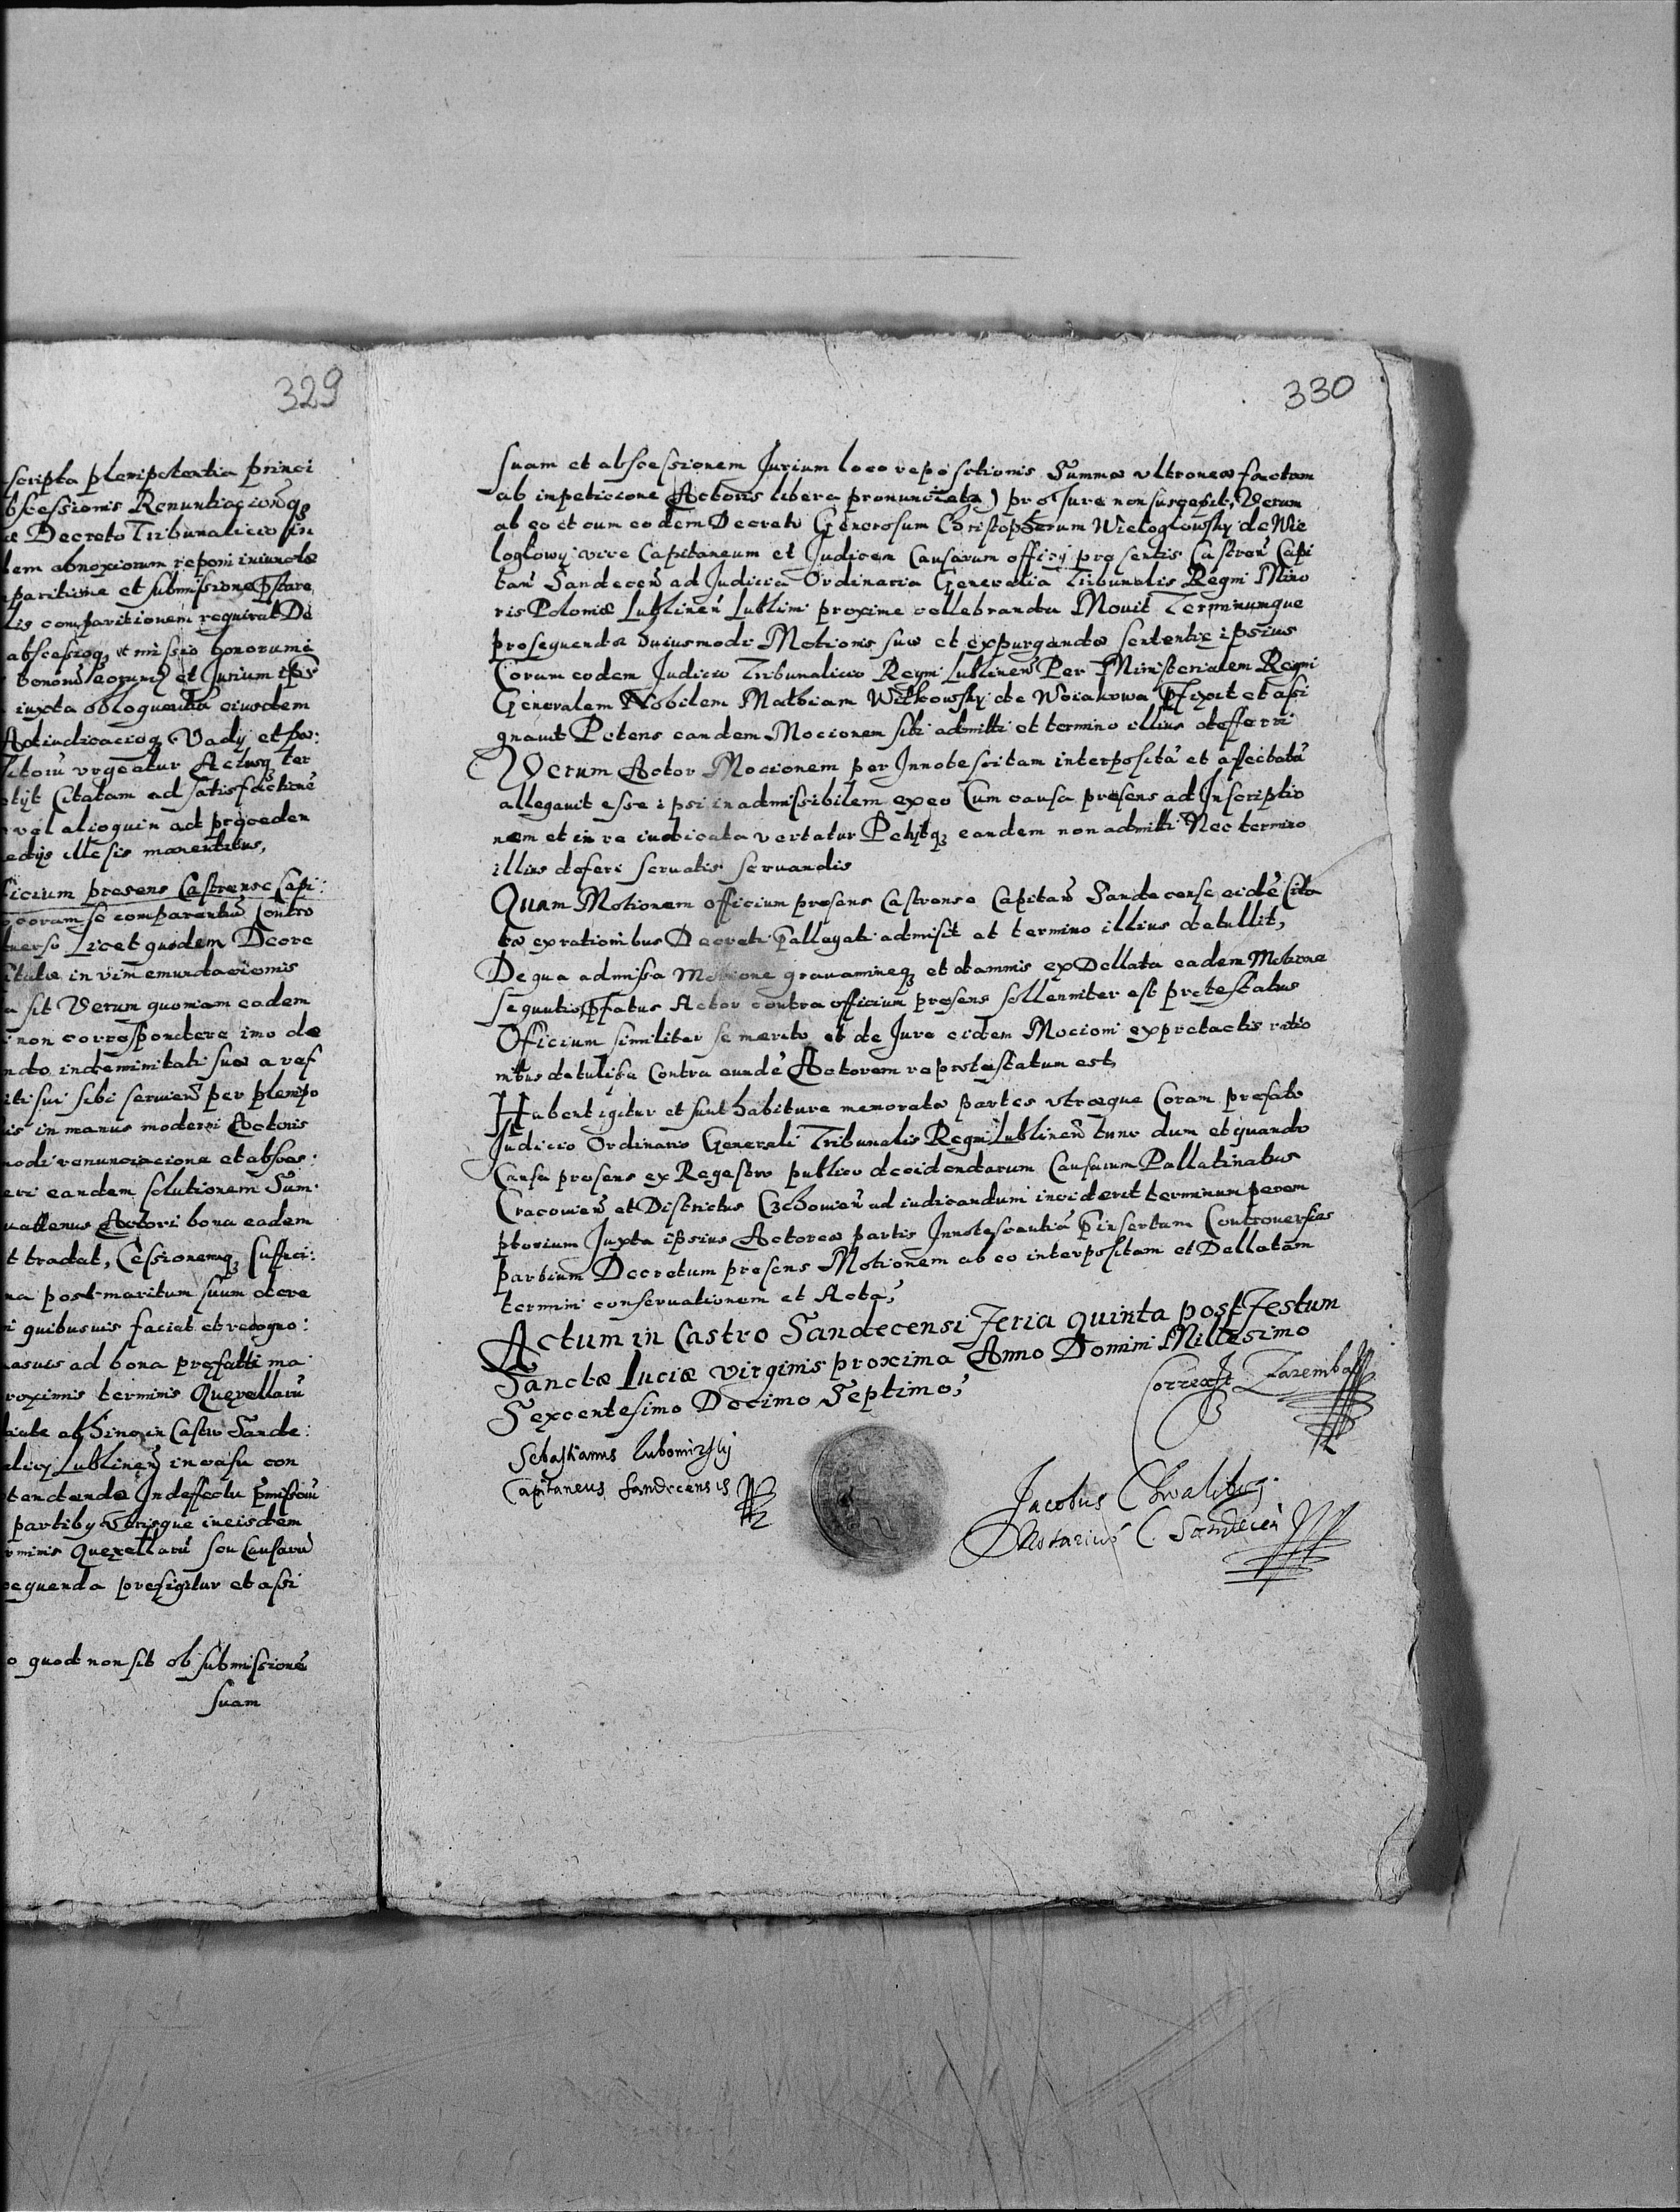 329
scripta plenipotentia princi
bscessionis Renuntiacionóq3
Decreto Tribunalicio in
dem obnoxiorum reponi iniuncta
paritione et submissione pstare
lis comparitionem requirat De
abscessioq3 et missio bonorum
bonorú eorumq3 et Jurium ips
iuxta obloquentia eiusdem
Adiudicacioq3 Vadij et pæ:
urgeatur Actusq3 ter
Citatam ad satisfactioné
vel alioquin ad proceden
edijs illesis manentibus,
icium presens Castrense Capi:
coram se comparentiú Contro
uerso Licet quidem Decre
in vim emundacionis
sit Verum quoniam eadem
non correspondere imo de
ndo indemnitati suæ a ref
iti sui sibi servień per plenipo
is in manus moderni Actoris
modi renunciacione et absces:
eri eandem solutionem Sum:
uattenus Actori bona eadem
t tradat, Cessionemq3 suffici:
na post maritum suum dere
i quibusuis faciat et recogno:
asuis ad bona prefatti ma
roximis terminis Querellarú
abhinc in Castro Sande:
Lublineń in casu con
tendenda Indeffectu pmissorú
partiby Utrisque ineisdem
rminis Querellarú seu Causarú
equenda prefigitur et assi
o quod non sit ob submissioné
suam
330
suam et abscessionem Jurium loco repositionis Summæ ultroneæ factam
ab impeticione Actoris libera pronunciata) pro Jure non suscepit, Verum
ab eo et cum eodem Decreto Generosum Christopherum Wieloglowsky de Wie
loglowy vice Capitaneum et Judicem Causarum officij presentis Castreń Capi
tań Sandeceń ad Judicia Ordinaria Generalia Tribunalis Regni Mino
ris Poloniæ Lublineń Lublini proxime cellebranda Mouit Terminumque
prosequendæ huiusmodi Motionis suæ et expurgandæ sententiæ ipsius
Coram eodem Judicio Tribunalicio Regni Lublineń Per Ministerialem Regni
Generalem Nobilem Mathiam Witkowsky de Woiakowa pfixit et assi
gnauit Petens eandem Mocionem sibi admitti et termino illius defferri
Verum Actor Mocionem per Innotescitam interpositá et affectatá
allegauit esse ipsi inadmissibilem ex eo Cum causa presens ad Inscriptio
nem et in re iudicata vertatur Petijtq3 eandem non admitti Nec termino
illius deferi seruatis seruandis
Quam Motionem officium presens Castrense Capitań Sandecense eidé Cita
tæ ex rationibus Decreti pallegati admisit et termino illius detullit,
De qua admissa Motione grauamineq3 et damnis ex Dellata eadem Motione
sequutis, pfatus Actor contra officium presens sollenniter est protestatus
Officium similiter se merito et de Jure eidem Mocioni ex pretactis ratio
nibus detulisse Contra eundé Actorem reprotestatum est,
Habent igitur et sunt habituræ memoratæ partes utræque Coram prefato
Judicio Ordinario Generali Tribunalis Regni Lublineń tunc dum et quando
Causa presens ex Regestro publico decidendarum Causarum Pallatinatus
Cracouień et Districtus Czchouień ad iudicandum inciderit terminum perem
ptorium Juxta ipsius Actoreæ partis Innotescentiá pinsertam Controuersias
partium Decretum presens Motionem ab eo interpositam et Dellatam
termini conseruationem et Acta,
Actum in Castro Sandecensi Feria quinta post Festum
Sanctæ Luciæ virginis proxima Anno Domini Millesimo
Sexcentesimo Decimo Septimo,
Correxit Zaremba
Sebastianus Lubomirsky
Capitaneus Sandecensis
Jacobus Chwalibog
Notarius C. Sandeceń